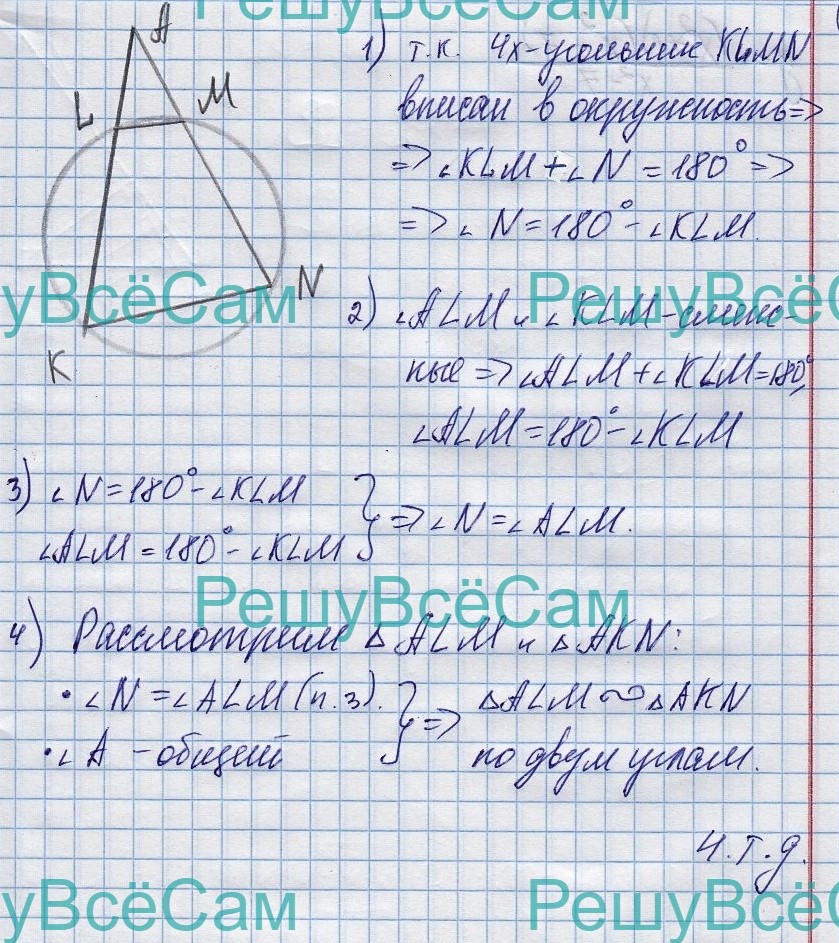 РешуВсёСам
A
L
M
N
K
1) т.к. 4х-угольник KLMN
вписан в окружность =>
=> ∠KLM + ∠N = 180° =>
=> ∠N = 180° - ∠KLM.
уВсёСам
РешуВсёС
2) ∠ALM и ∠KLM - смеж-
ные => ∠ALM + ∠KLM = 180°,
∠ALM = 180° - ∠KLM
3) ∠N = 180° - ∠KLM
∠ALM = 180° - ∠KLM } => ∠N = ∠ALM.
РешуВсёСам
4) Рассмотрим △ALM и △AKN:
• ∠N = ∠ALM (п.3).
• ∠A - общий
} => △ALM ∾ △AKN
по двум углам.
Ч.т.д.
уВсёСам
РешуВсёС